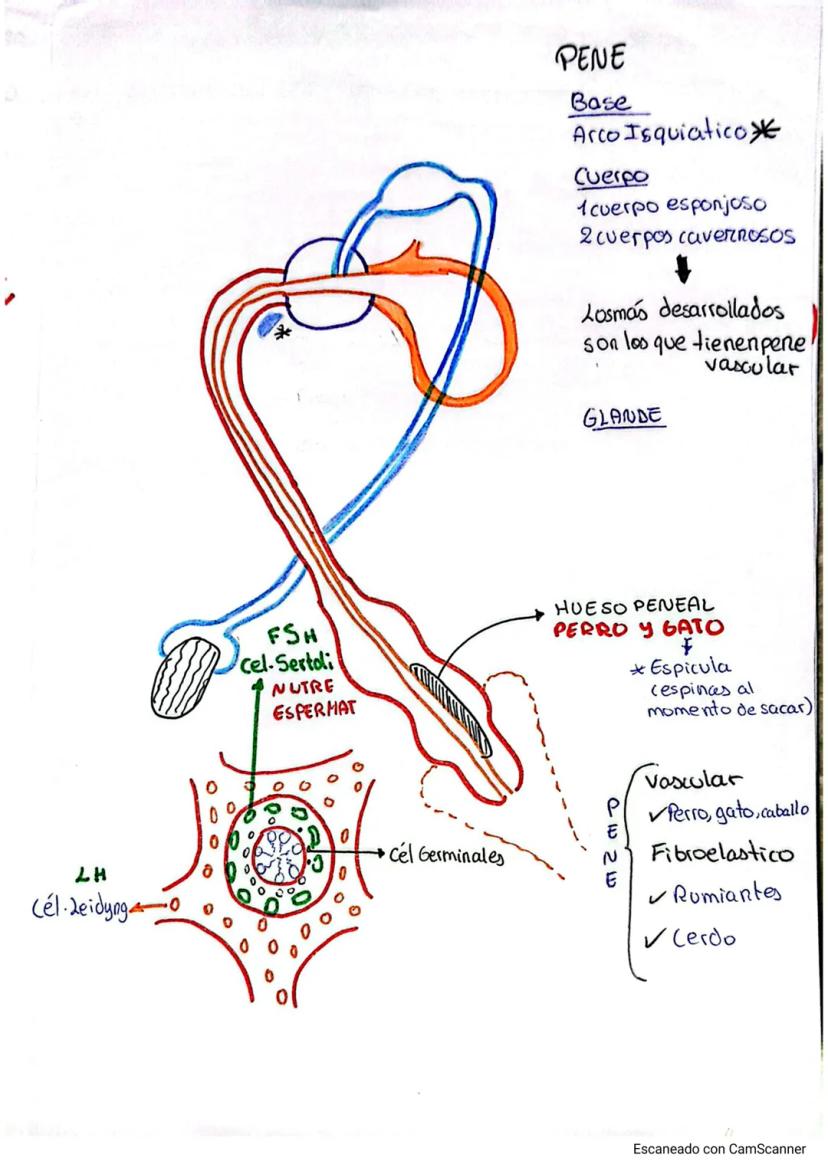 PENE
Base
Arco Isquiatico *
Cuerpo
1 cuerpo esponjoso
2 cuerpos cavernosos
Los más desarrollados
son los que tienen pene
vascular
GLANDE
*
HUESO PENEAL
PERRO Y GATO
* Espicula
(espinas al
momento de sacar)
FSH
Cel. Sertoli
NUTRE
ESPERMAT
Cél Germinales
LH
Cél. Leidyng
PENE
Vascular
✓ Perro, gato, caballo
Fibroelastico
✓ Rumiantes
✓ Cerdo
Escaneado con CamScanner